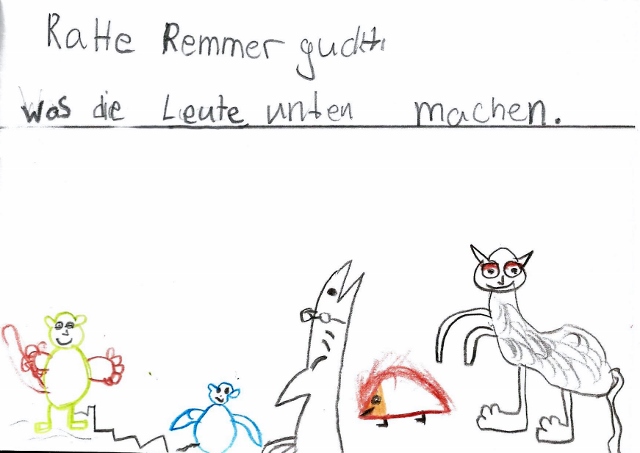 Ratte Remmer guckt
was die Leute unten machen.